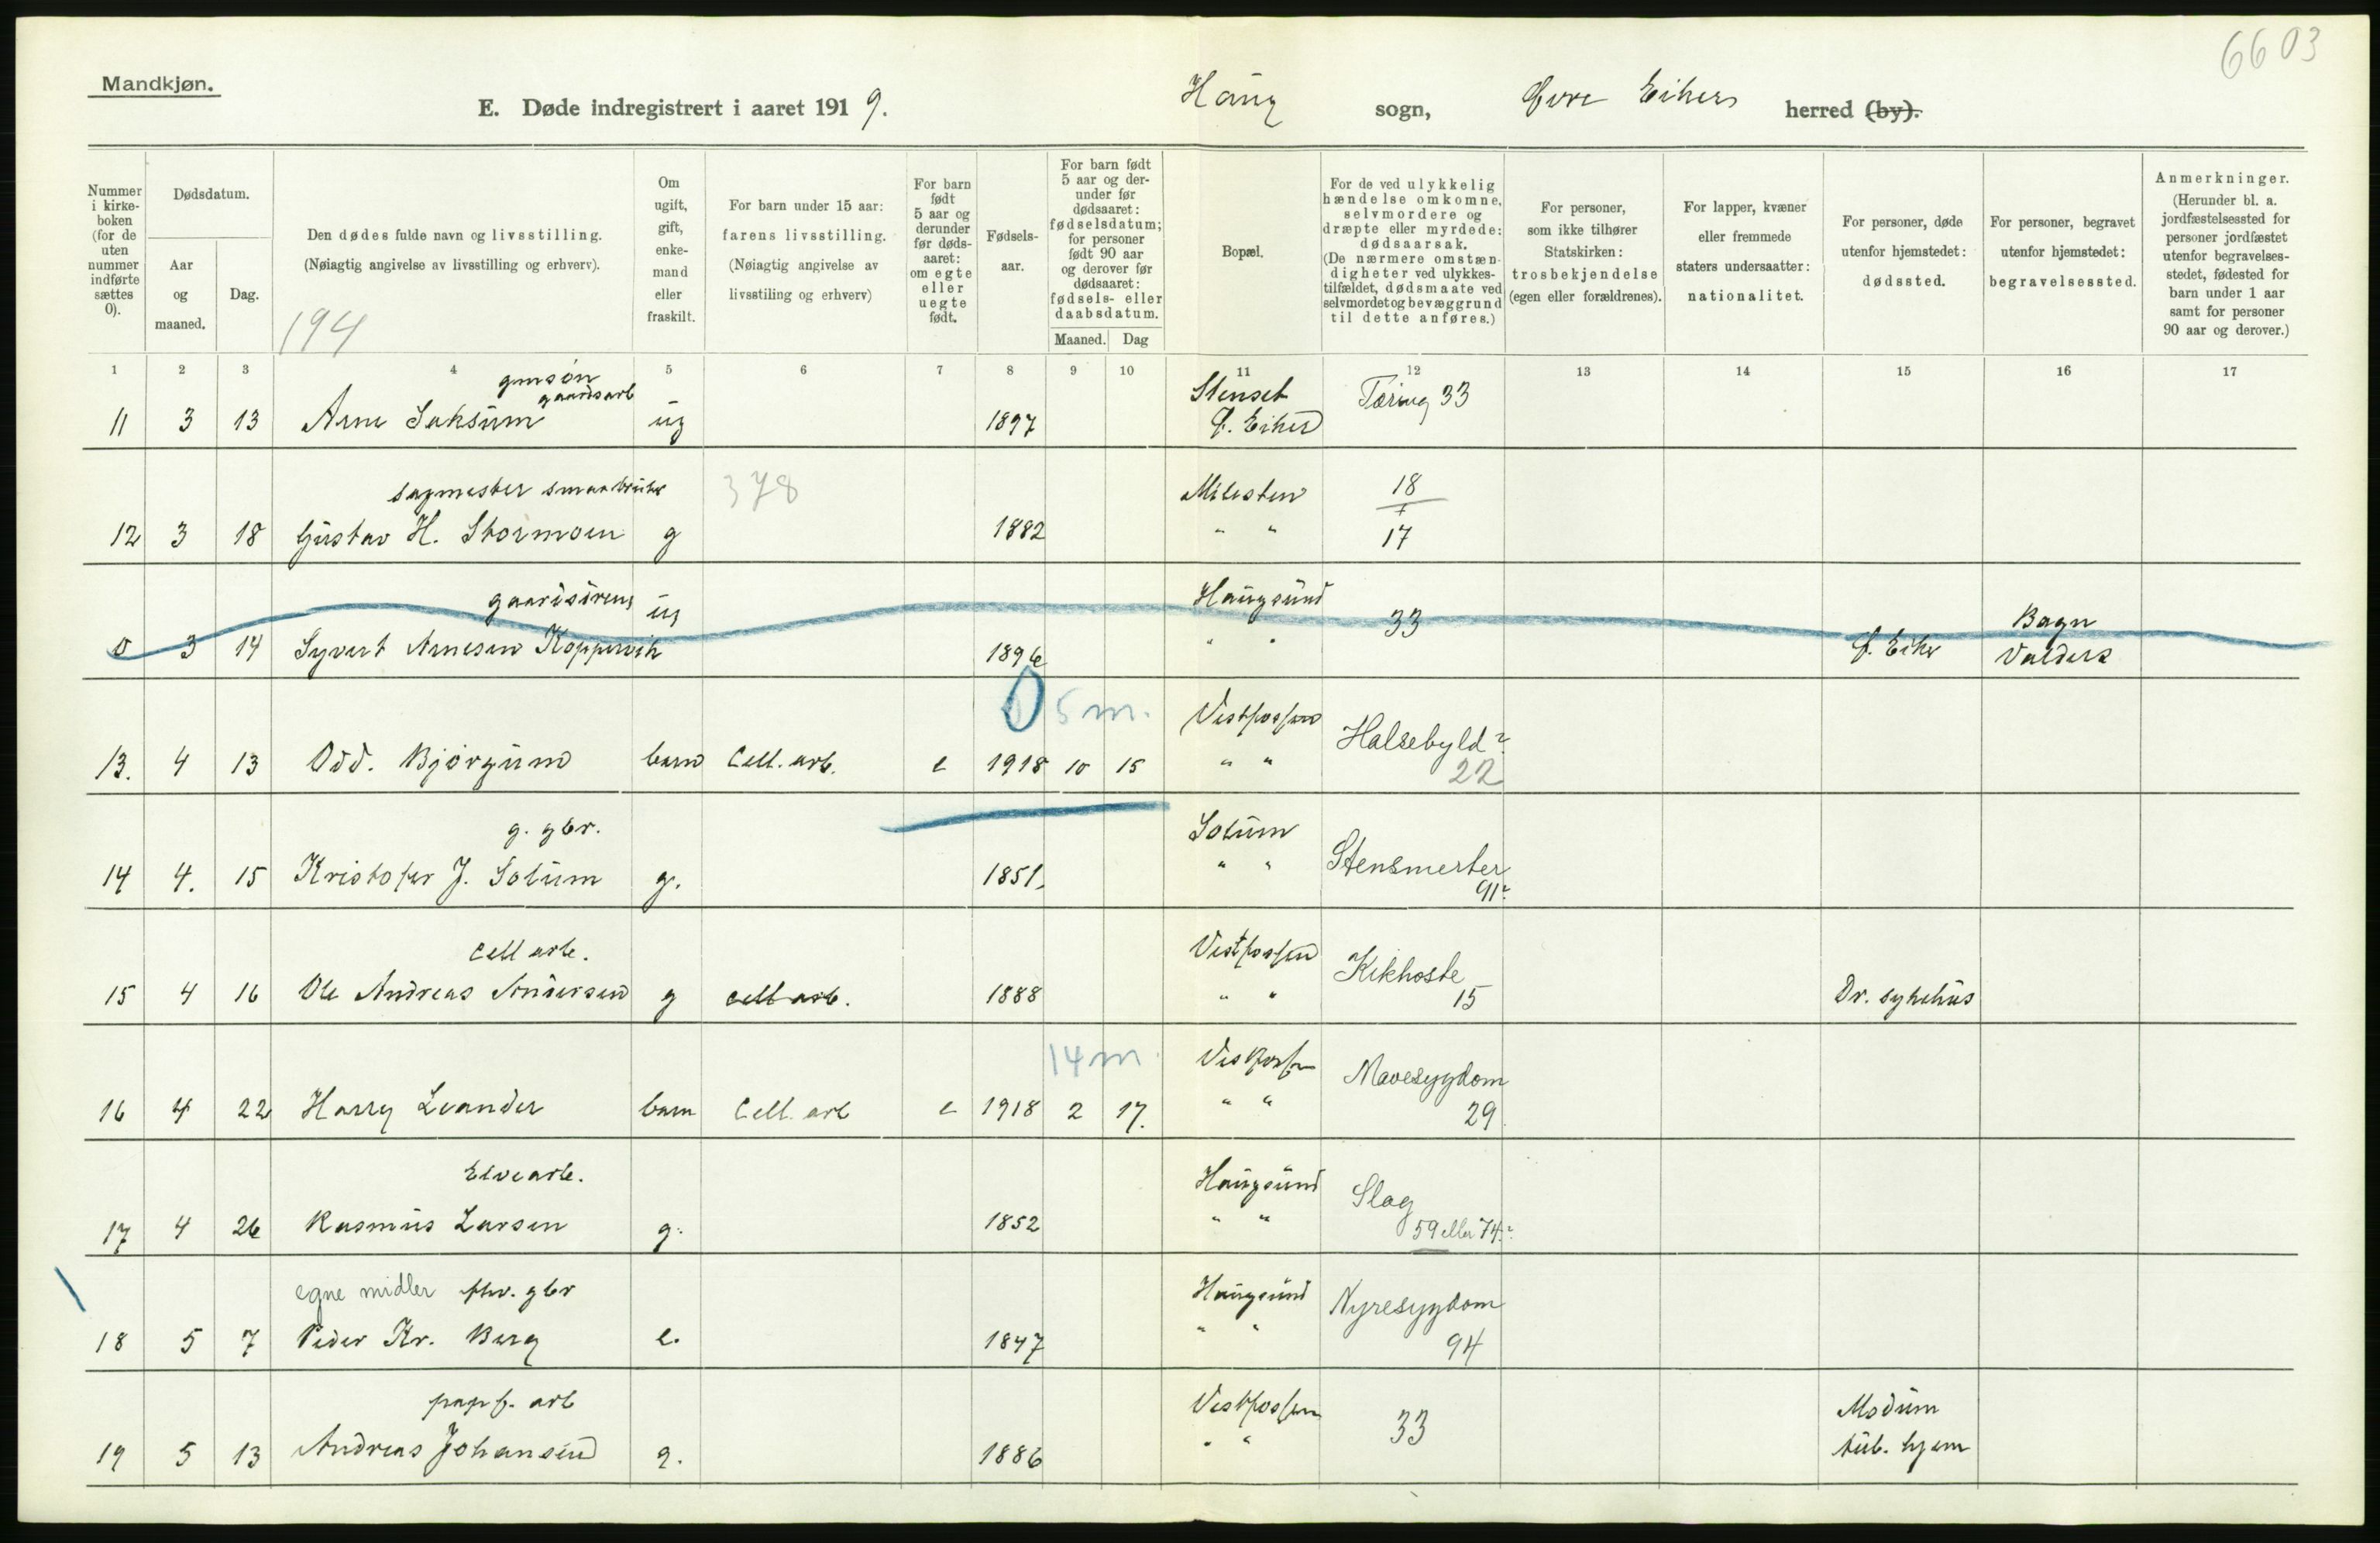 6603
Mandkjøn.
E. Døde indregistrert i aaret 1919. Haug sogn, Øvre Eiker herred (by).
Nummer i kirkeboken (for de uten nummer indførte sættes 0).
Dødsdatum.
Aar og maaned.
Dag.
Den dødes fulde navn og livsstilling.
(Nøiagtig angivelse av livsstilling og erhverv).
194
Om ugift, gift, enkemand eller fraskilt.
For barn under 15 aar: farens livsstilling.
(Nøiagtig angivelse av livsstiling og erhverv)
For barn født 5 aar og derunder før dødsaaret: om egte eller uegte født.
Fødselsaar.
For barn født 5 aar og derunder før dødsaaret: fødselsdatum; for personer født 90 aar og derover før dødsaaret: fødsels- eller daabsdatum.
Maaned. Dag
Bopæl.
For de ved ulykkelig hændelse omkomne, selvmordere og dræpte eller myrdede: dødsaarsak.
(De nærmere omstændigheter ved ulykkestilfældet, dødsmaate ved selvmordet og bevæggrund til dette anføres.)
For personer, som ikke tilhører Statskirken: trosbekjendelse (egen eller forældrenes).
For lapper, kvæner eller fremmede staters undersaatter: nationalitet.
For personer, døde utenfor hjemstedet: dødssted.
For personer, begravet utenfor hjemstedet: begravelsessted.
Anmerkninger.
(Herunder bl. a. jordfæstelsessted for personer jordfæstet utenfor begravelsesstedet, fødested for barn under 1 aar samt for personer 90 aar og derover.)
1 2 3 4 5 6 7 8 9 10 11 12 13 14 15 16 17
gmsøn
gaardsarb Stenset Tæring 33
11 3 13 Arne Saksum ug 1897 Ø. Eiker
sagmester smaabruker 378 Milesten 18
12 3 18 Gustav H. Stormoen g 1882 " " + 17
gaardsdreng ug Haugsund 33 Bagn
0 3 14 Syvert Arnesen Koppervik 1896 " " Ø. Eiker Valdres
0 5 m. Vestfossen Halsebyld?
13. 4 13 Odd. Bjørgum barn Cell. arb. e 1918 10 15 " " 22
g. gbr. Solum Stensmerter
14 4. 15 Kristofer J. Solum g. 1851. " " 91?
Cell arb. Vestfossen Kikhoste
15 4 16 Ole Andreas Andersen g cell arb. 1888 " " 15 Dr. sykehus
14 m. Vestfossen Mavesygdom
16 4 22 Harry Leander barn Cell. arb e 1918 2 17. " " 29
Elvearb. Haugsund Slag
17 4 26 Rasmus Larsen g. 1852 " " 59 eller 74?
egne midler fhv. gbr Haugsund Nyresygdom
18 5 7 Peder Kr. Berg e. 1847 " " 94
papf. arb Vestfossen 33 Modum
19 5 13 Andreas Johansen g. 1886 " " tub. hjem